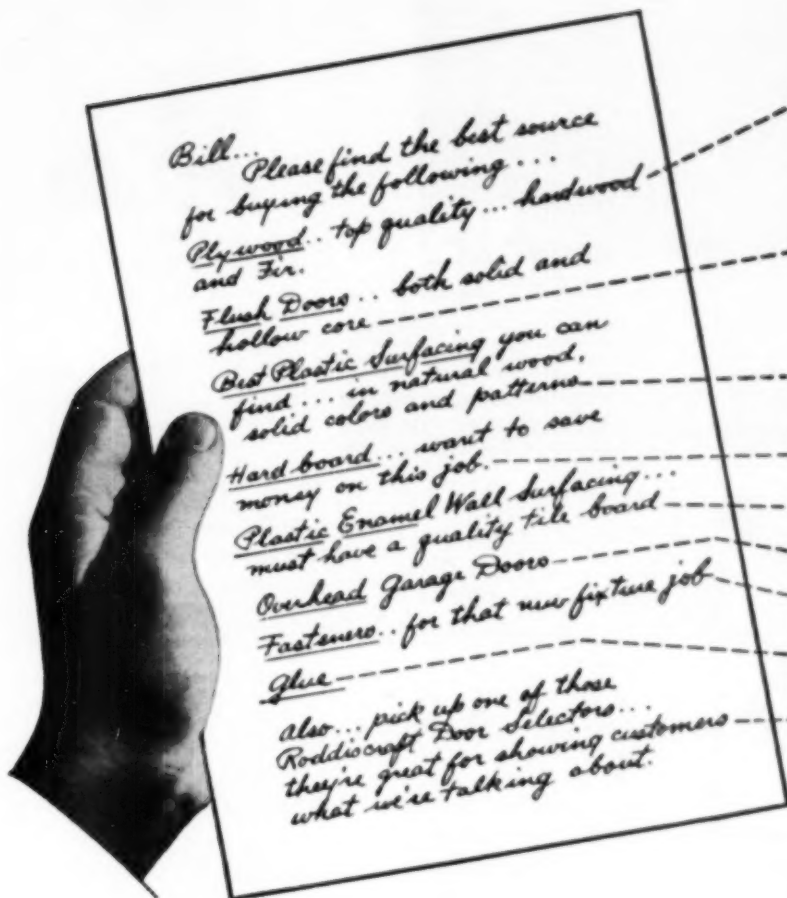 Bill...
Please find the best source
for buying the following...
Plywood.. top quality... hardwood
and Fir.
Flush Doors.. both solid and
hollow core
Best Plastic Surfacing you can
find... in natural wood,
solid colors and patterns
Hard board... want to save
money on this job.
Plastic Enamel Wall Surfacing...
must have a quality tile board
Overhead Garage Doors
Fasteners.. for that new fixture job
Glue
Also... pick up one of those
Roddiscraft Door Selectors...
they're great for showing customers
what we're talking about.